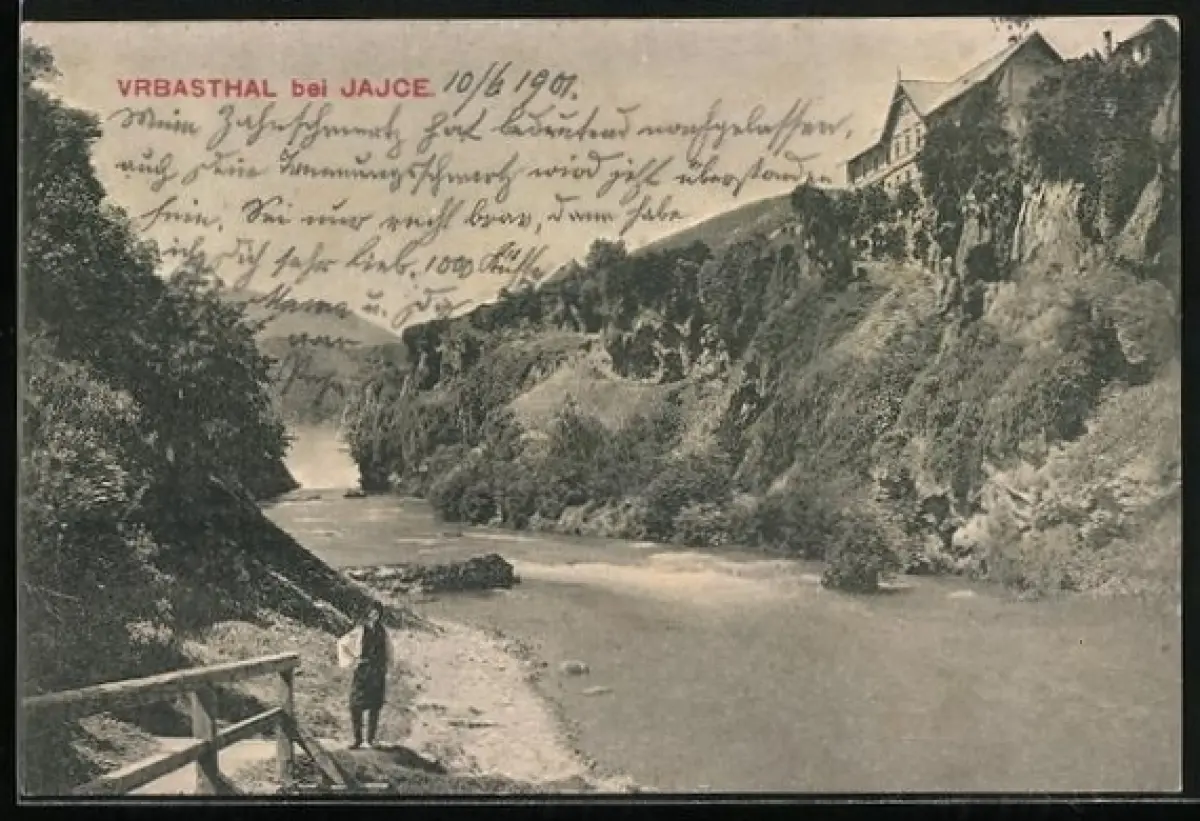 VRBASTHAL bei JAJCE. 10/6 1901.
Mein Zahnschmerz hat bedeutend nachgelassen,
auch Dein Trennungsschmerz wird jetzt überstanden
sein. Sei nur recht brav, dann habe
ich Dich sehr lieb. 1000 Küsse
Mama u.